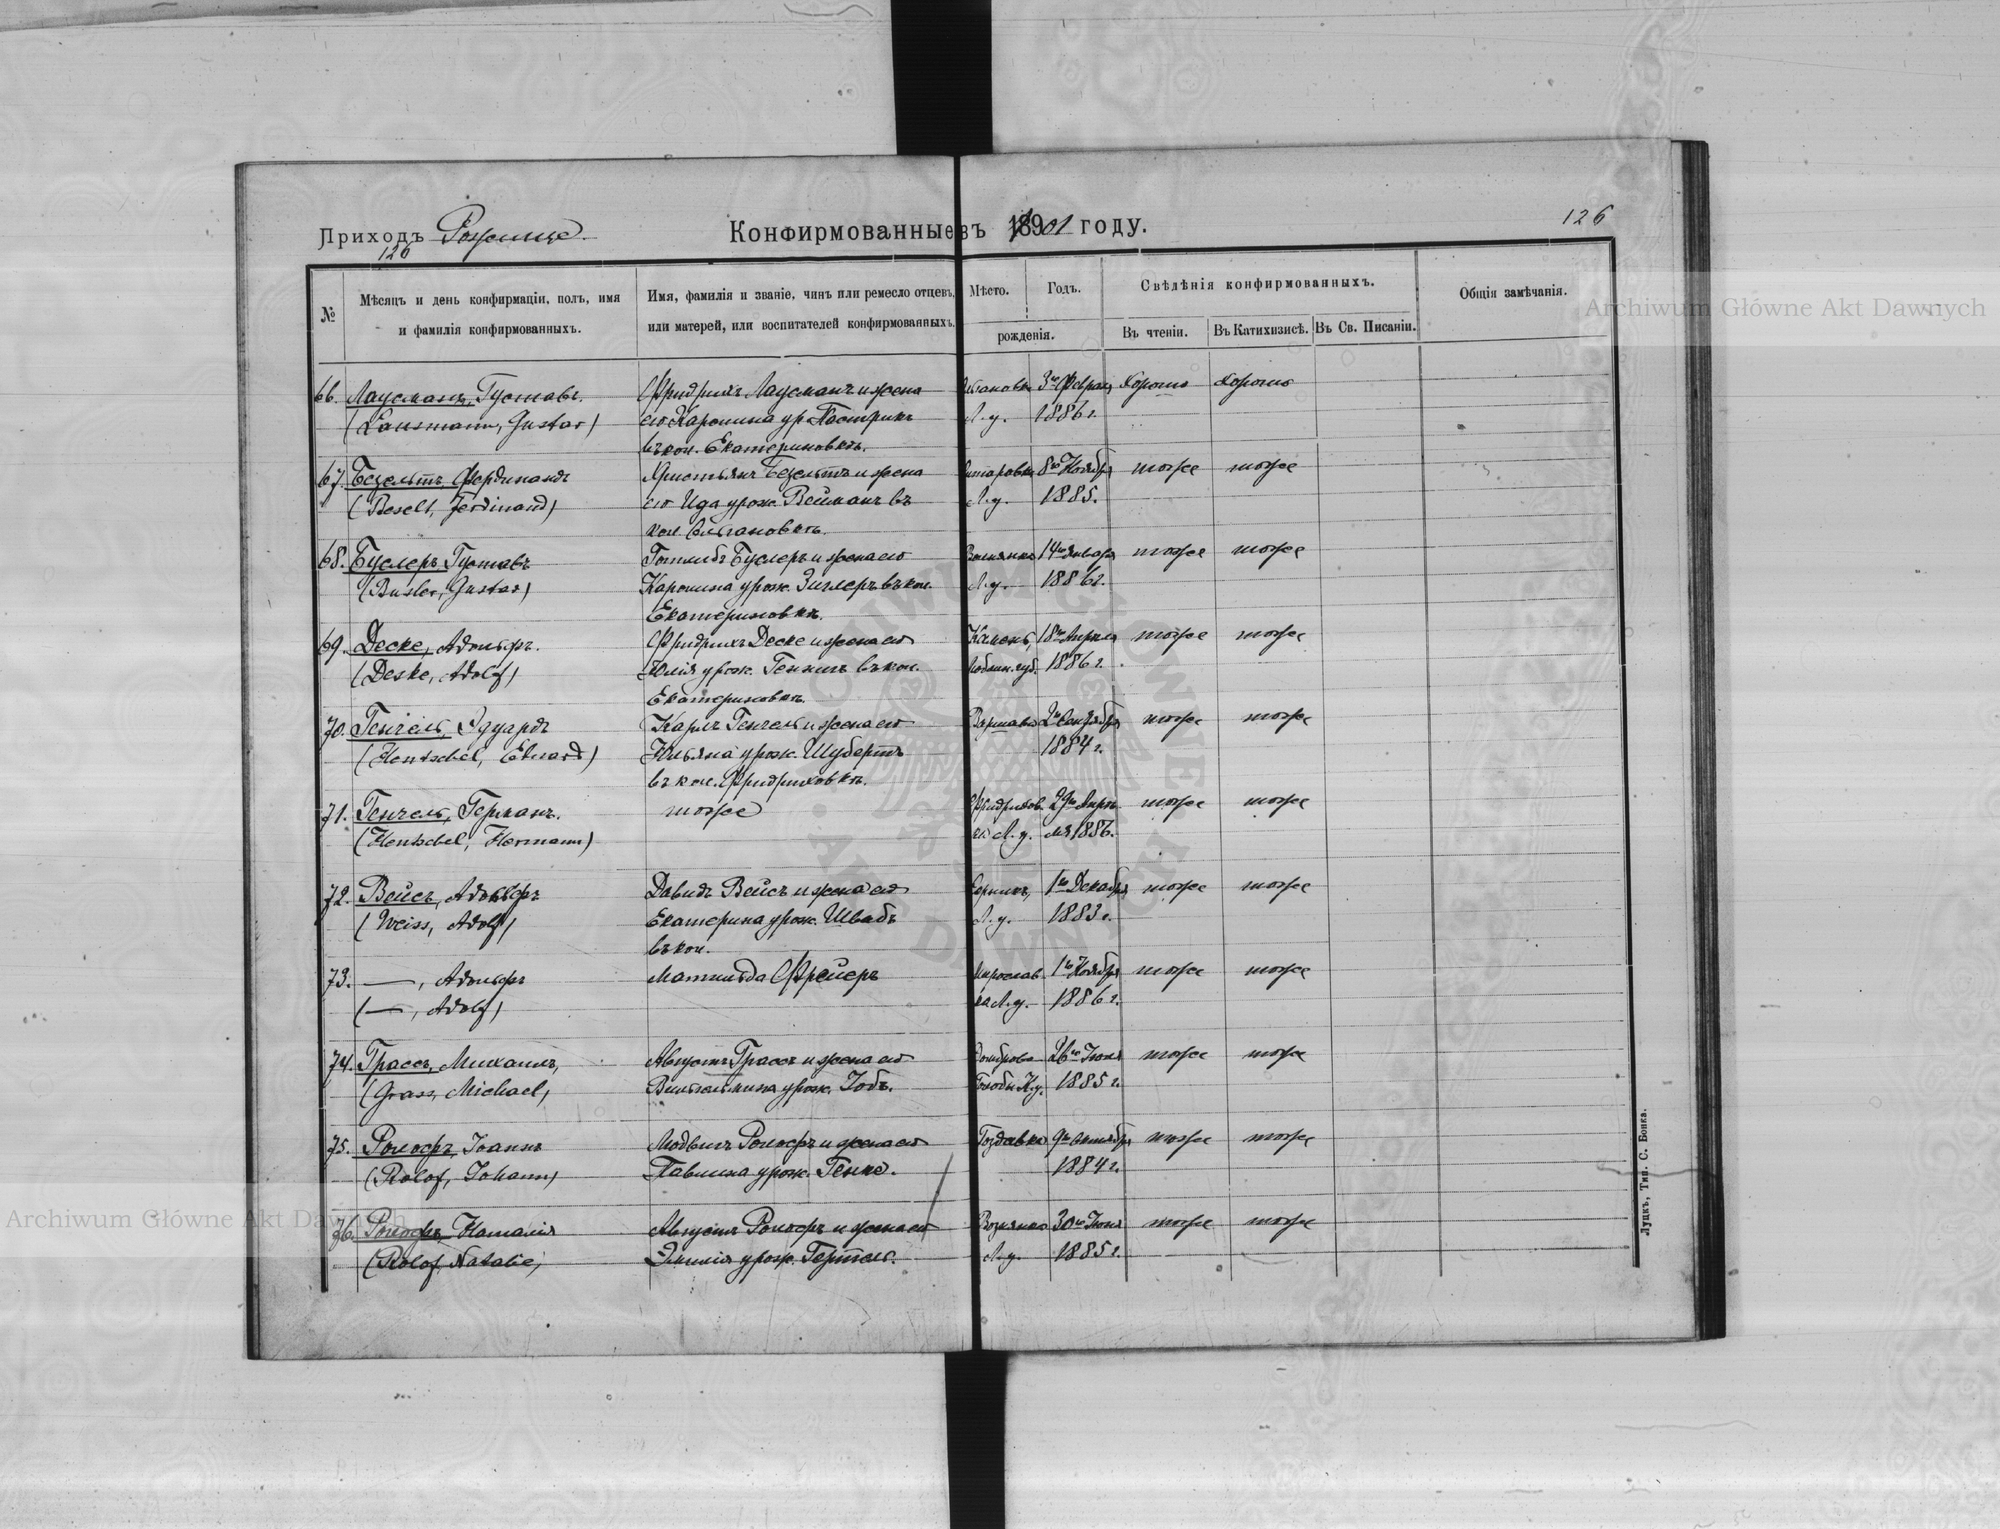 126
Приходъ Рожище.
126
Конфирмованные въ 1901 году.
№
Мѣсяцъ и день конфирмаціи, полъ, имя
и фамилія конфирмованныхъ.
Имя, фамилія и званіе, чинъ или ремесло отцевъ,
или матерей, или воспитателей конфирмованныхъ.
Мѣсто. Годъ.
рожденія.
Свѣдѣнія конфирмованныхъ.
Въ чтеніи. Въ Катихизисѣ. Въ Св. Писаніи.
Общія замѣчанія.
66. Лаусманъ, Густавъ. Фридрихъ Лаусманъ и жена 3го Февраля Хорошо Хорошо
(Lausmann, Gustav) его Каролина ур. Л.у. 1886 г.
въ кол. Екатериновкѣ.
67. Безельтъ, Фердинандъ Христьянъ Безельтъ и жена 8го Ноября тоже тоже
(Beselt, Ferdinand) его Ида урож. Вейманъ въ Л.у. 1885.
кол.
68. Буслеръ, Густавъ Готлибъ Буслеръ и жена его 14го Января тоже тоже
(Busler, Gustav) Каролина урож. Зиглеръ въ кол. Л.у. 1886 г.
Екатериновкѣ.
69. Деске, Адольфъ. Фридрихъ Деске и жена его Камень, 18го Апреля тоже тоже
(Deske, Adolf) Юлія урож. въ кол. Люблин. губ. 1886 г.
Екатериновкѣ.
70. Генчель, Эдуардъ Карлъ Генчель и жена его Варшава 2го тоже тоже
(Hentschel, Eduard) Юльяна урож. Шубертъ 1884 г.
въ кол. Фридриховкѣ.
71. Генчель, Германъ. тоже Фридрихов. 29го Апрѣ- тоже тоже
(Hentschel, Hermann) Л.у. ля 1886.
72. Вейсъ, Адольфъ Давидъ Вейсъ и жена его 1го Декабря тоже тоже
(Weiss, Adolf) Екатерина урож. Швабъ Л.у. 1883 г.
въ кол.
73. —, Адольфъ Матильда Фрейеръ Мирослав. 1го Ноября тоже тоже
(—, Adolf) ка Л.у. 1886 г.
74. Грассъ, Михаилъ, Августъ Грассъ и жена его Домброва 26го Іюня тоже тоже
(Grass, Michael) Вильгельмина урож. Іобъ. 1885 г.
75. Ролофъ, Іоаннъ Людвигъ Ролофъ и жена его 9го Октября тоже тоже
(Rolof, Johann) Павлина урож. Генке. 1884 г.
76. Ролофъ, Наталія Августъ Ролофъ и жена его 30го Іюня тоже тоже
(Rolof, Natalie) Эмилія урож. Гертель. Л.у. 1885 г.
Луцкъ, Тип. С. Бонка.
Archiwum Główne Akt Dawnych
Archiwum Główne Akt Dawnych